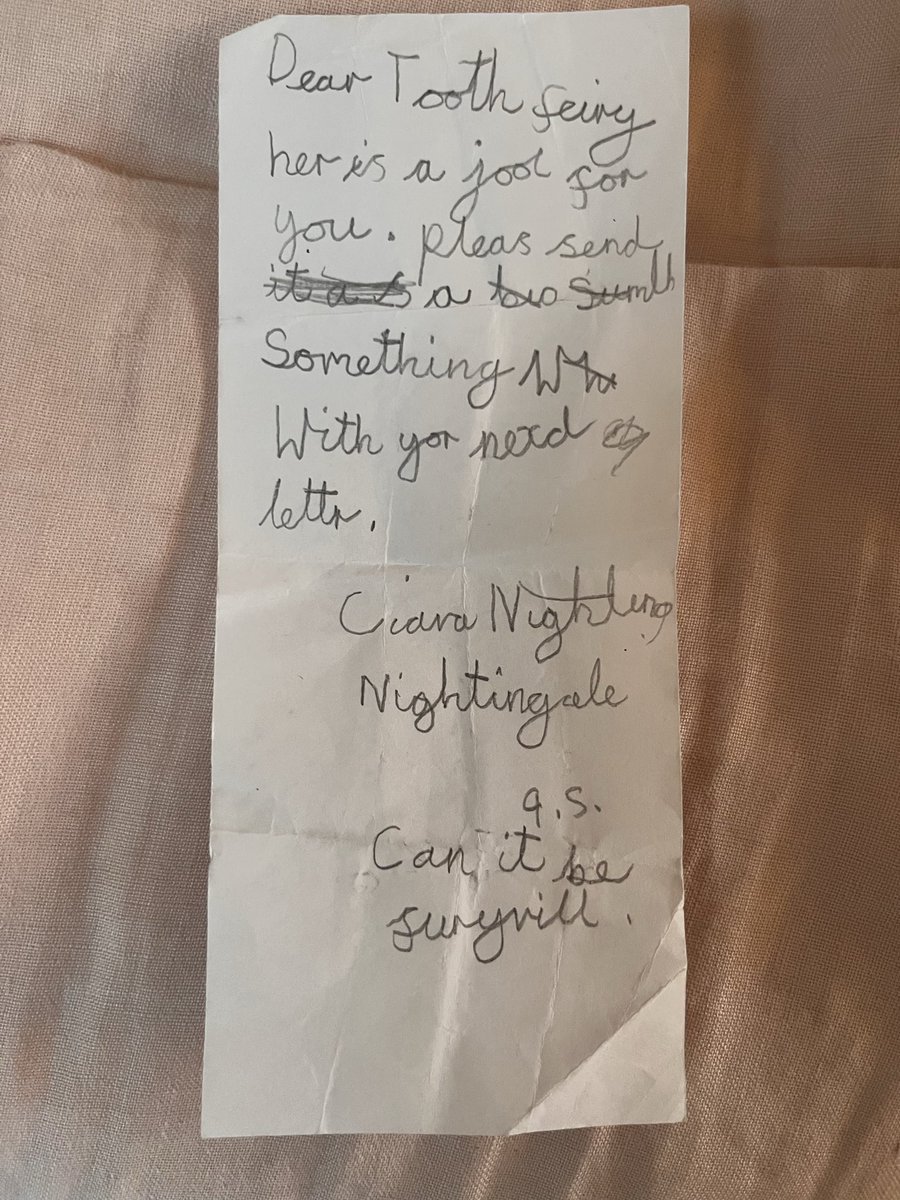 Dear Tooth feiry
her is a jool for
you. pleas send
it a s a two sumth
Something Wh
With yor nexd
lettr.
Ciara Nighting
Nightingale
q.s.
Can it be
furyrill.